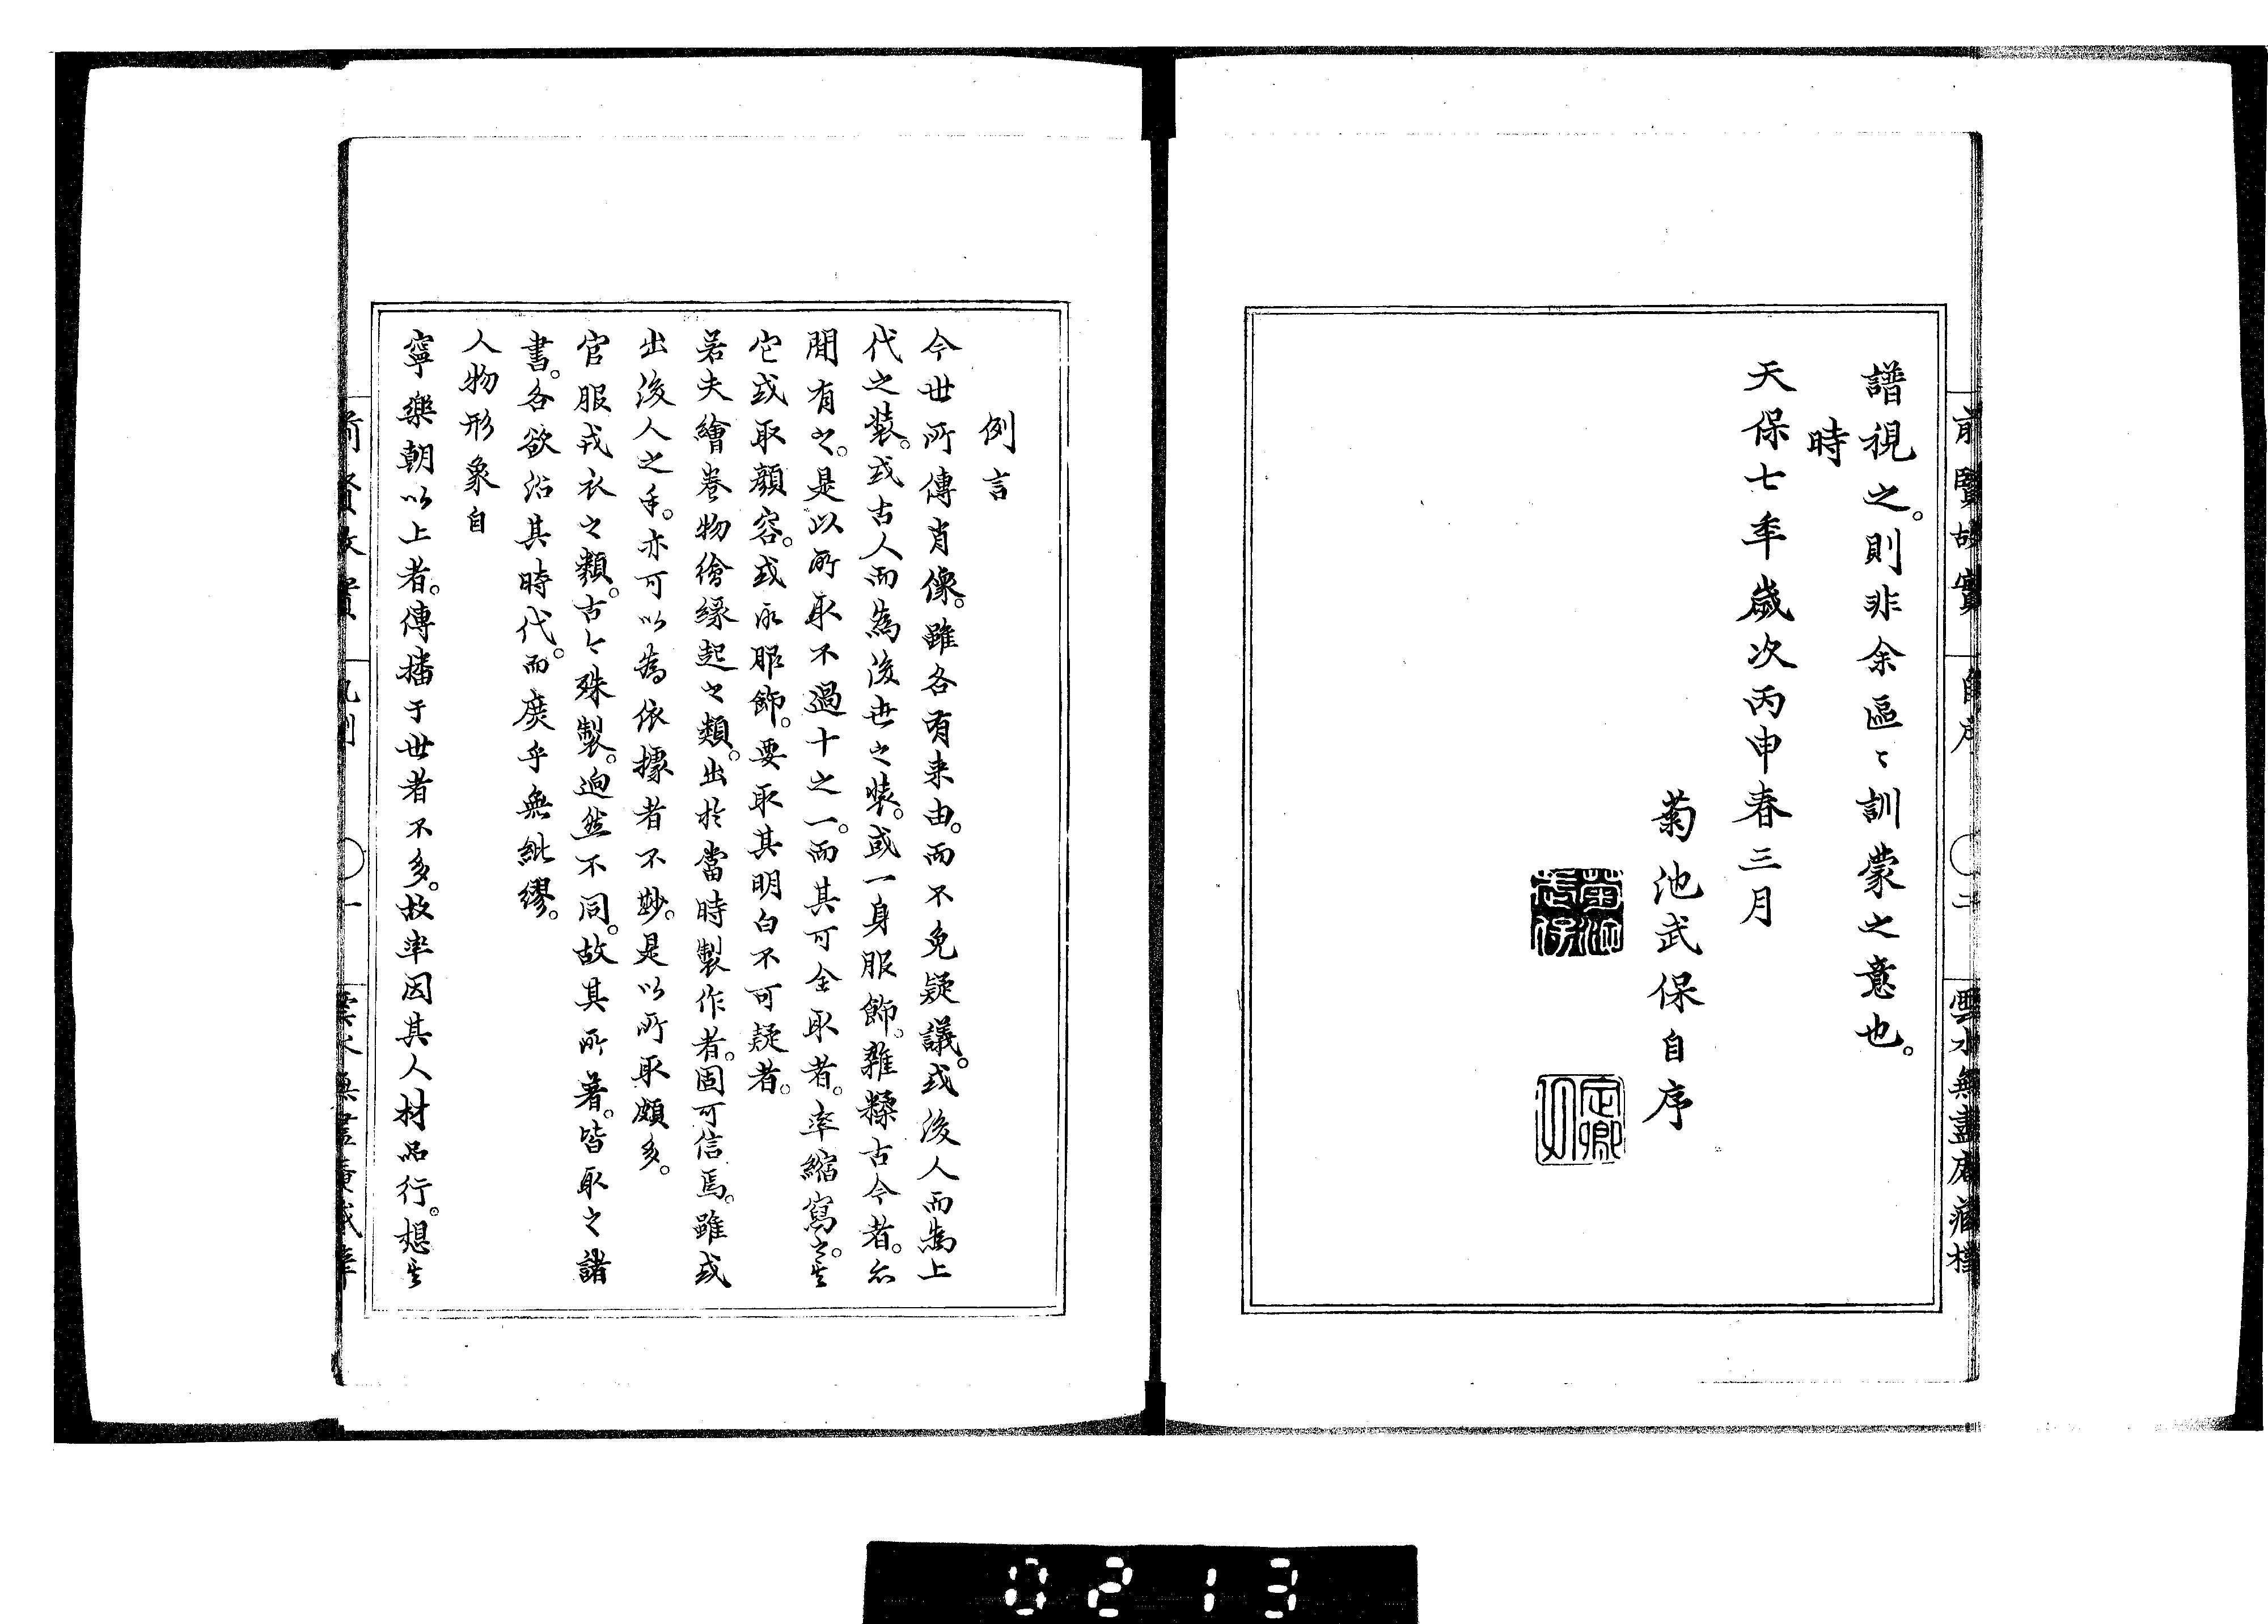 前賢故實 自序 〇二 雲水無盡庵藏梓
譜視之。則非余區〻訓蒙之意也。
時
天保七年歲次丙申春三月
菊池武保自序
菊池武保
定卿
例言
今世所傳肖像。雖各有来由。而不免疑議。或後人而為上
代之装。或古人而為後世之装。或一身服飾。雜糅古今者。亦
間有之。是以所取不過十之一。而其可全取者。率縮寫之。其
它或取顏容。或取服飾。要取其明白不可疑者。
若夫繪卷物繪緣起之類。出於當時製作者。固可信焉。雖或
出後人之手。亦可以為依據者不尠。是以所取頗多。
官服戎衣之類。古今殊製。迥然不同。故其所著。皆取之諸
書。各欲沿其時代。而庶乎無紕繆。
人物形象自
寧樂朝以上者。傳播于世者不多。故率因其人材品行。想其
前賢故實 凡例 〇一 雲水無盡庵藏梓
0213